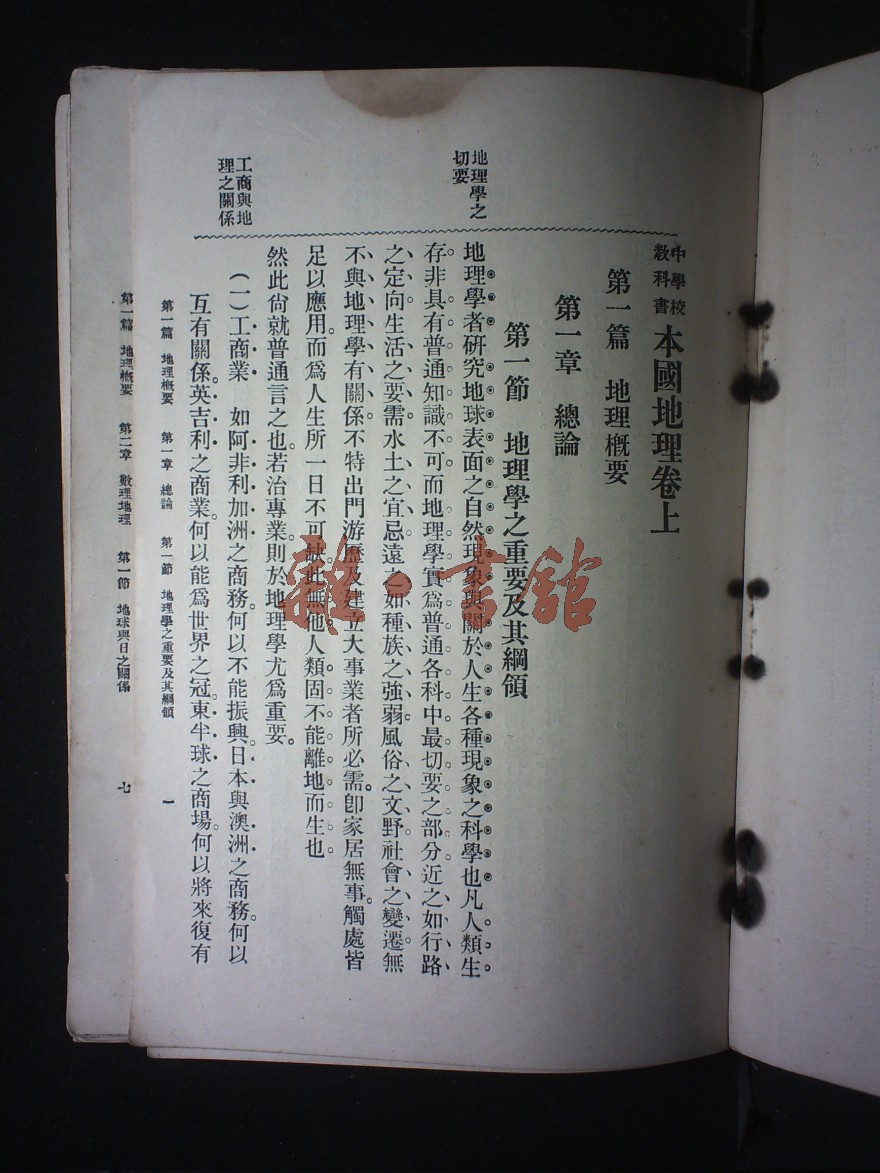 中學校
教科書
本國地理卷上
第一篇 地理概要
第一章 總論
第一節 地理學之重要及其綱領
地理學之
切要
地理學者研究地球表面之自然現象與關於人生各種現象之科學也凡人類生
存非具有普通知識不可而地理學實爲普通各科中最切要之部分近之如行路
之定向生活之要需水土之宜忌遠之如種族之強弱風俗之文野社會之變遷無
不與地理學有關係不特出門游歷及建立大事業者所必需。卽家居無事。觸處皆
足以應用。而爲人生所一日不可缺此無他人類固不能離地而生也
然此尙就普通言之也。若治專業。則於地理學尤爲重要。
工商與地
理之關係
(一)工商業 如阿非利加洲之商務。何以不能振興。日本與澳洲之商務。何以
互有關係。英吉利之商業。何以能爲世界之冠。東半球之商場。何以將來復有
第一篇 地理概要 第一章 總論 第一節 地理學之重要及其綱領 一
第一篇 地理概要 第二章 數理地理 第一節 地球與日之關係 七
雜·書館